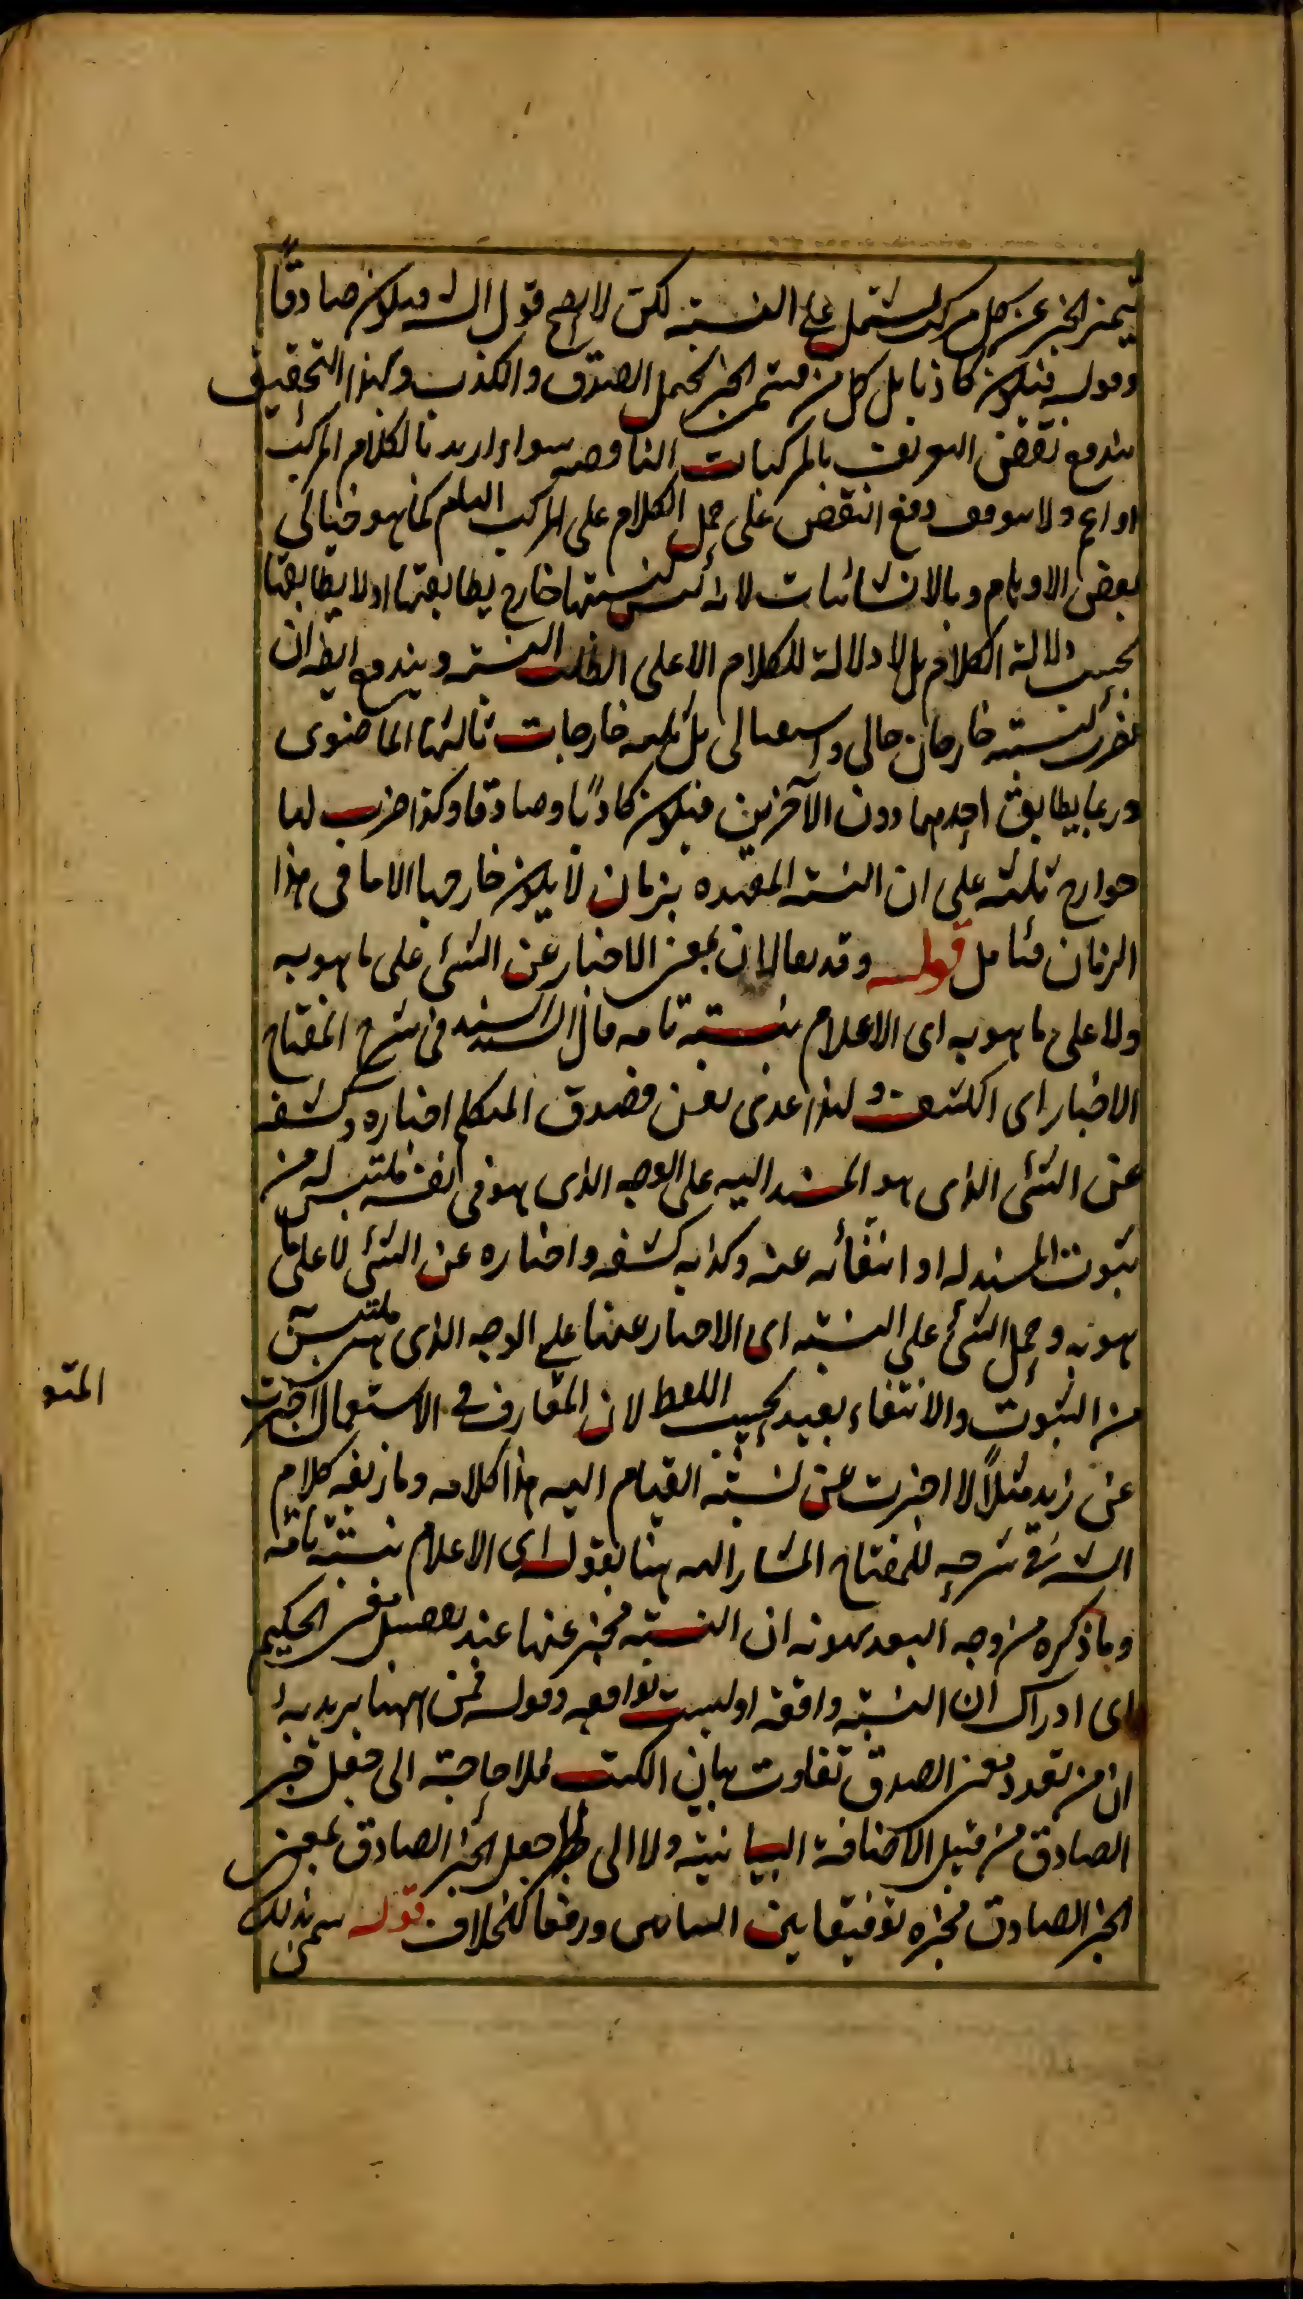 يتميز الخبر عن كل مركب يشتمل على النسبة لكن لا يصح قول الشه فيكون صادقاً
وقوله فيكون كاذبا بل كل من قسمى الخبر يحتمل الصدق والكذب وبهذا التحقيق
يندفع نقض التعريف بالمركبات الناقصه سواء اريد بالكلام المركب
او اعم ولا يتوقف دفع النقض على حمل الكلام على المركب التام كما هو خيالى
بعض الاوهام وبالانشائيات لانه ليس لنسبتها خارج يطابقها او لا يطابقها
بحسب دلالة الكلام بل لا دلالة للكلام الا على النسبة ويندفع ايضا ان
لنسبته خارجان حالى واستقبالى بل ثلثه خارجات ثالثها الماضوى
وربما يطابق احدهما دون الآخرين فيكون كاذبا وصادقا وكذا ضرب لها
خوارج ثلثه على ان النسبة المقيده بزمان لا يكون خارجها الا ما فى هذا
الزمان فتامل قوله وقد يقال ان بمعنى الاخبار عن الشئ على ما هو به
ولا على ما هو به اى الاعلام بنسبة تامه قال السيد السند فى شرح المفتاح
الاخبار اى الكشف ولهذا عدى بعن فصدق المتكلم اخباره وكشفه
عن الشئ الذى هو المسند اليه على الوجه الذى هو فى نفسه ملتبس له من
ثبوت المسند له او انتفائه عنه وكذبه كشفه واخباره عن الشئ لا على ما
هو به وحمل الشئ على النسبة اى الاخبار عنها على الوجه الذى هى ملتبسة
من الثبوت والانتفاء بعيد بحسب اللفظ لان المتعارف فى الاستعمال اخبرت
عن زيد مثلاً لا اخبرت عن نسبة القيام اليه هذا كلامه وما زيفه كلام
الشه فى شرحه للمفتاح المشار اليه هنا بقوله اى الاعلام بنسبة تامة
وما ذكره من وجه البعد يهونه ان النسبة مخبر عنها عند تفصيل معنى الحكم
اى ادراك ان النسبة واقعة او ليست بواقعه وقوله فمن ههنا يريد به
ان من تعدد معنى الصدق تفاوت بيان الكتب فلا حاجة الى جعل خبر
الصادق من قبيل الاضافة البيانية ولا الى جعل الخبر الصادق بمعنى
الخبر الصادق مخبره توفيقا بين البيانين ورفعا للخلاف قوله سمى بذلك
المتو